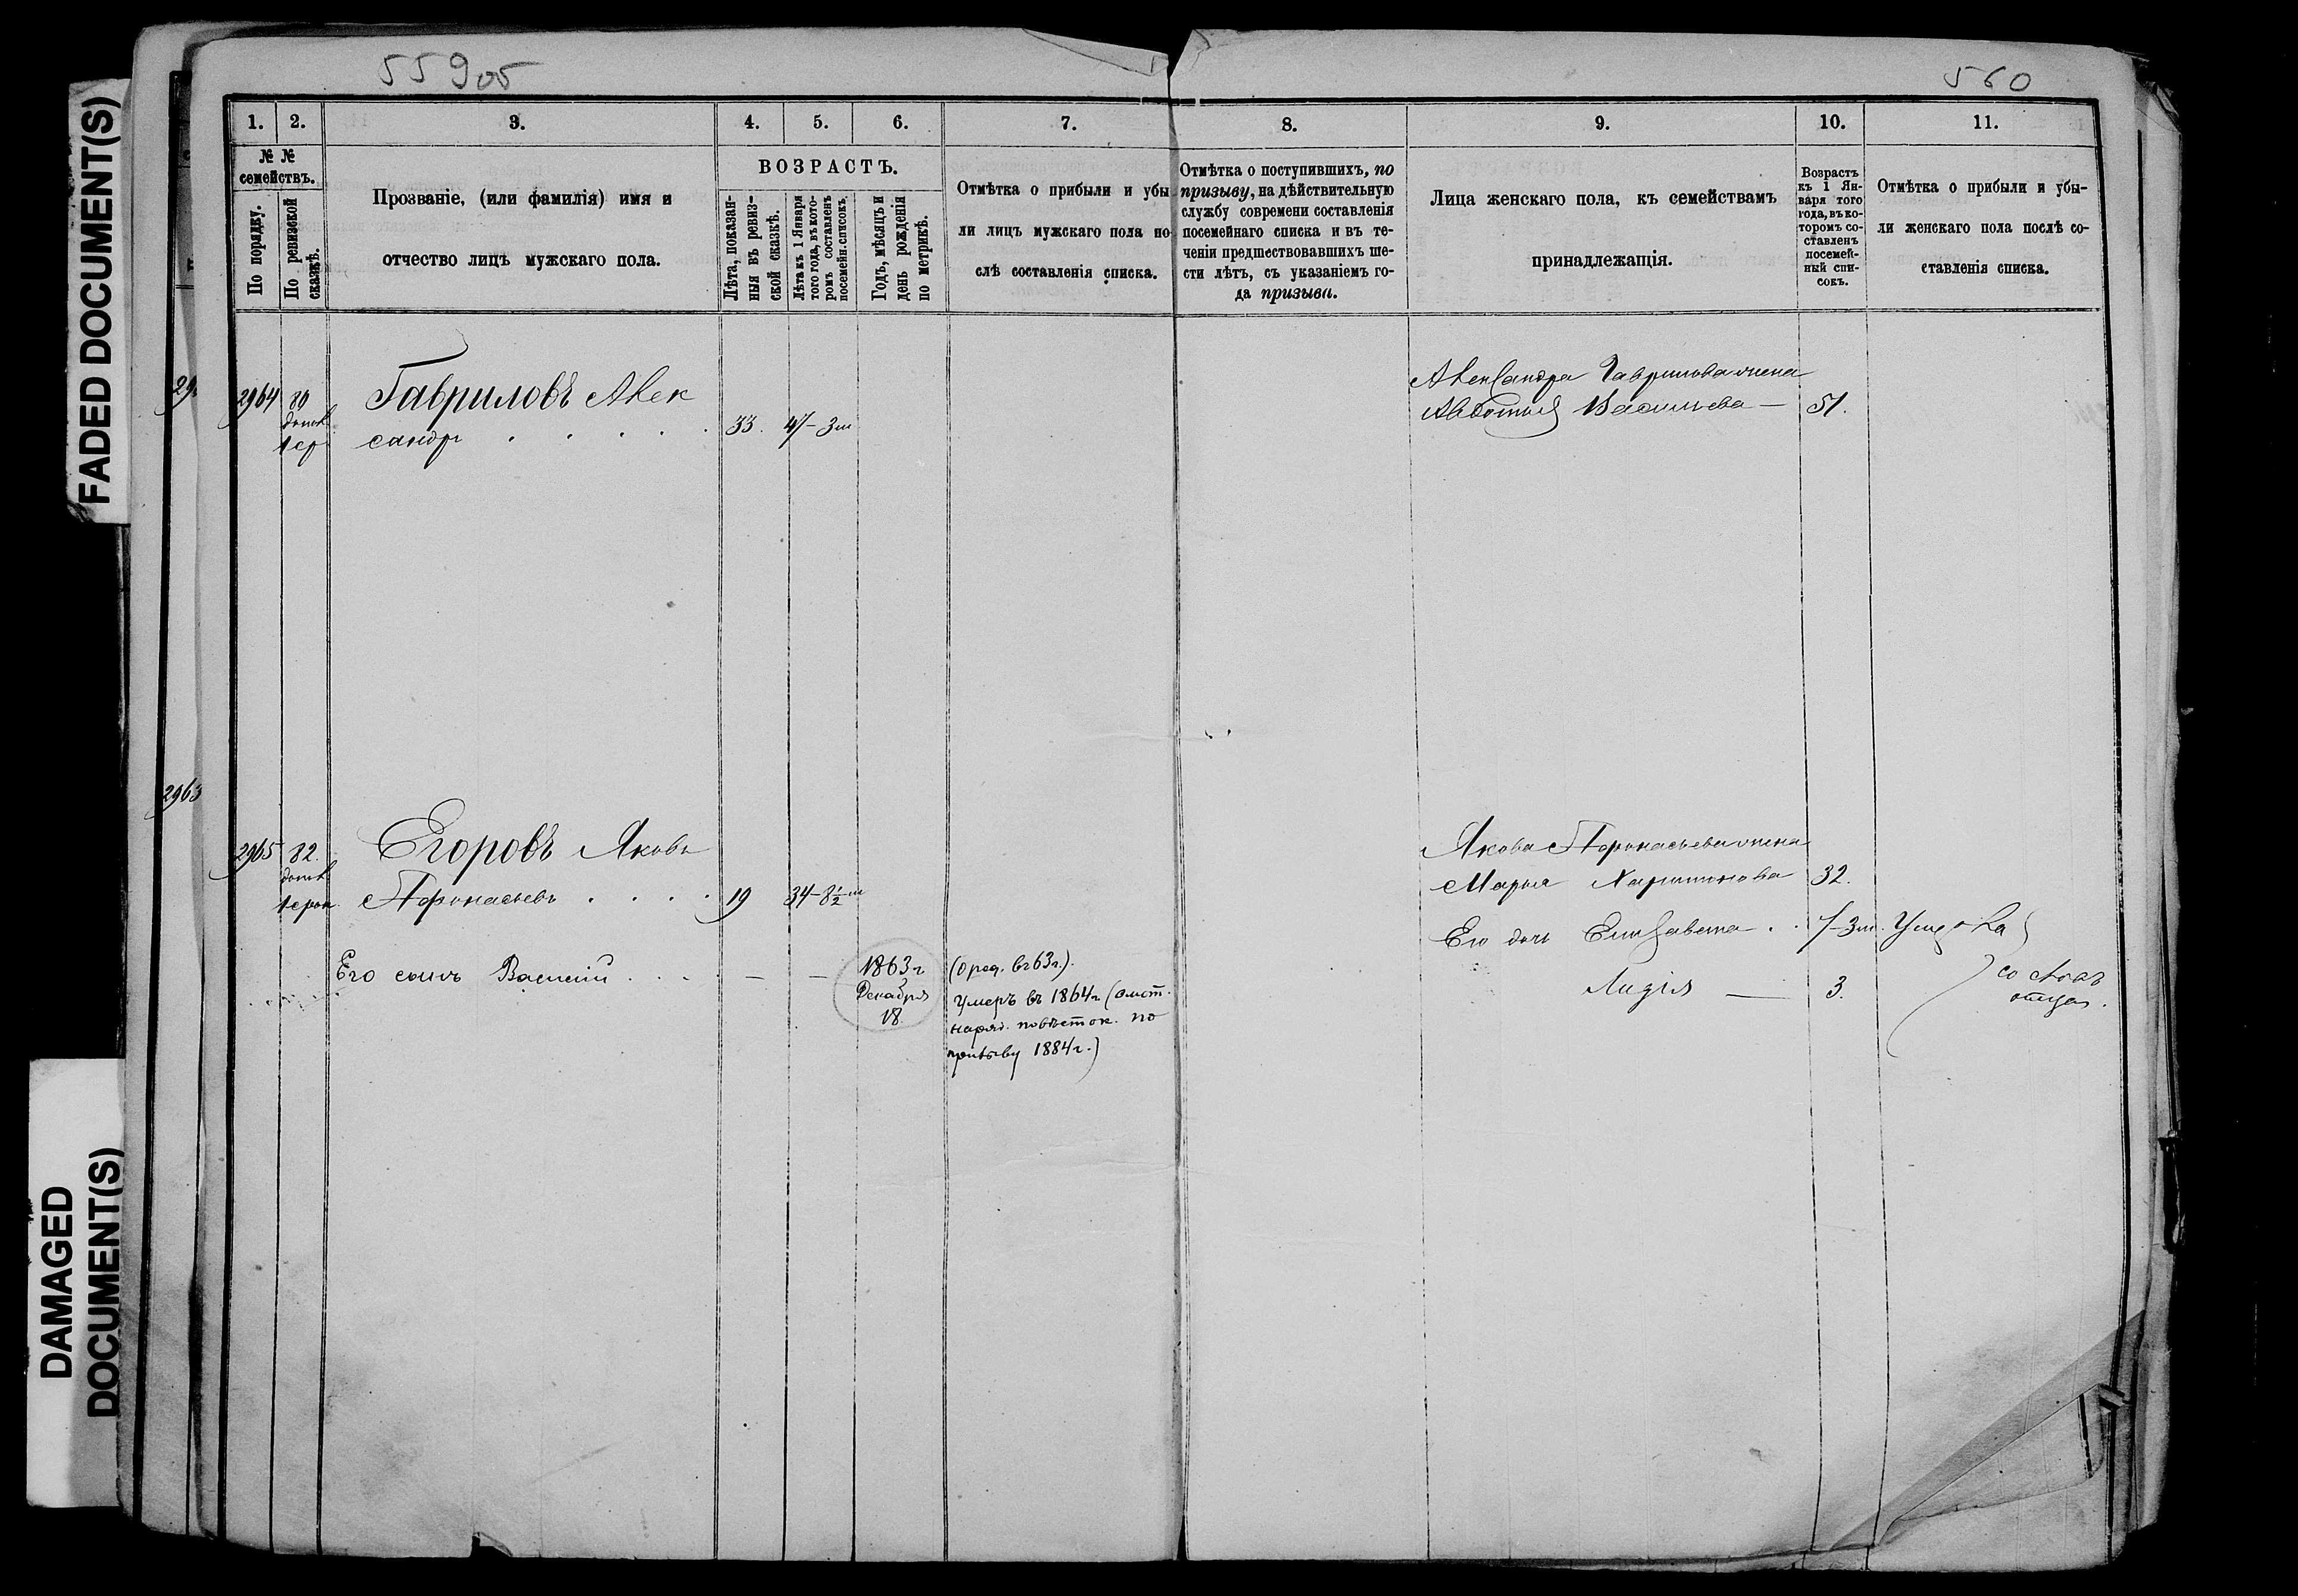 FADED DOCUMENT(S)
DAMAGED
DOCUMENT(S)
559об
560
1.
2.
3.
4.
5.
6.
7.
8.
9.
10.
11.
№ №
семействъ.
По порядку.
По ревизской
сказкѣ.
Прозваніе, (или фамилія) имя и
отчество лицъ мужскаго пола.
ВОЗРАСТЪ.
Лѣта, показан-
ныя въ ревиз-
ской сказкѣ.
Лѣта къ 1 Января
того года, въ кото-
ромъ составленъ
посемейн. списокъ.
Годъ, мѣсяцъ и
день рожденія
по метрикѣ.
Отмѣтка о прибыли и убы
ли лицъ мужскаго пола по-
слѣ составленія списка.
Отмѣтка о поступившихъ, по
призыву, на дѣйствительную
службу современи составленія
посемейнаго списка и въ те-
ченіи предшествовавшихъ ше-
сти лѣтъ, съ указаніемъ го-
да призыва.
Лица женскаго пола, къ семействамъ
принадлежащія.
Возрастъ
къ 1 Ян-
варя того
года, въ ко-
торомъ со-
ставленъ
посемей-
ный спи-
сокъ.
Отмѣтка о прибыли и убы-
ли женскаго пола послѣ со-
ставленія списка.
2964
80
Гавриловъ Алек
сандр
33.
47-3м
Александра Гаврилова жена
Авдотья Васильева
51.
2963
2965
82.
Егоровъ Яковъ
Афонасьевъ
19
34-8½м
Якова Афонасьева жена
Марья Харитонова
32.
Его дочь Елизавета
7-3м.
Его сынъ Василій
1863г
Декабря
18.
(О род. въ 63г.).
умеръ въ 1864г (
по
призыву 1884г.)
Лидія
3.
со словъ
отца.